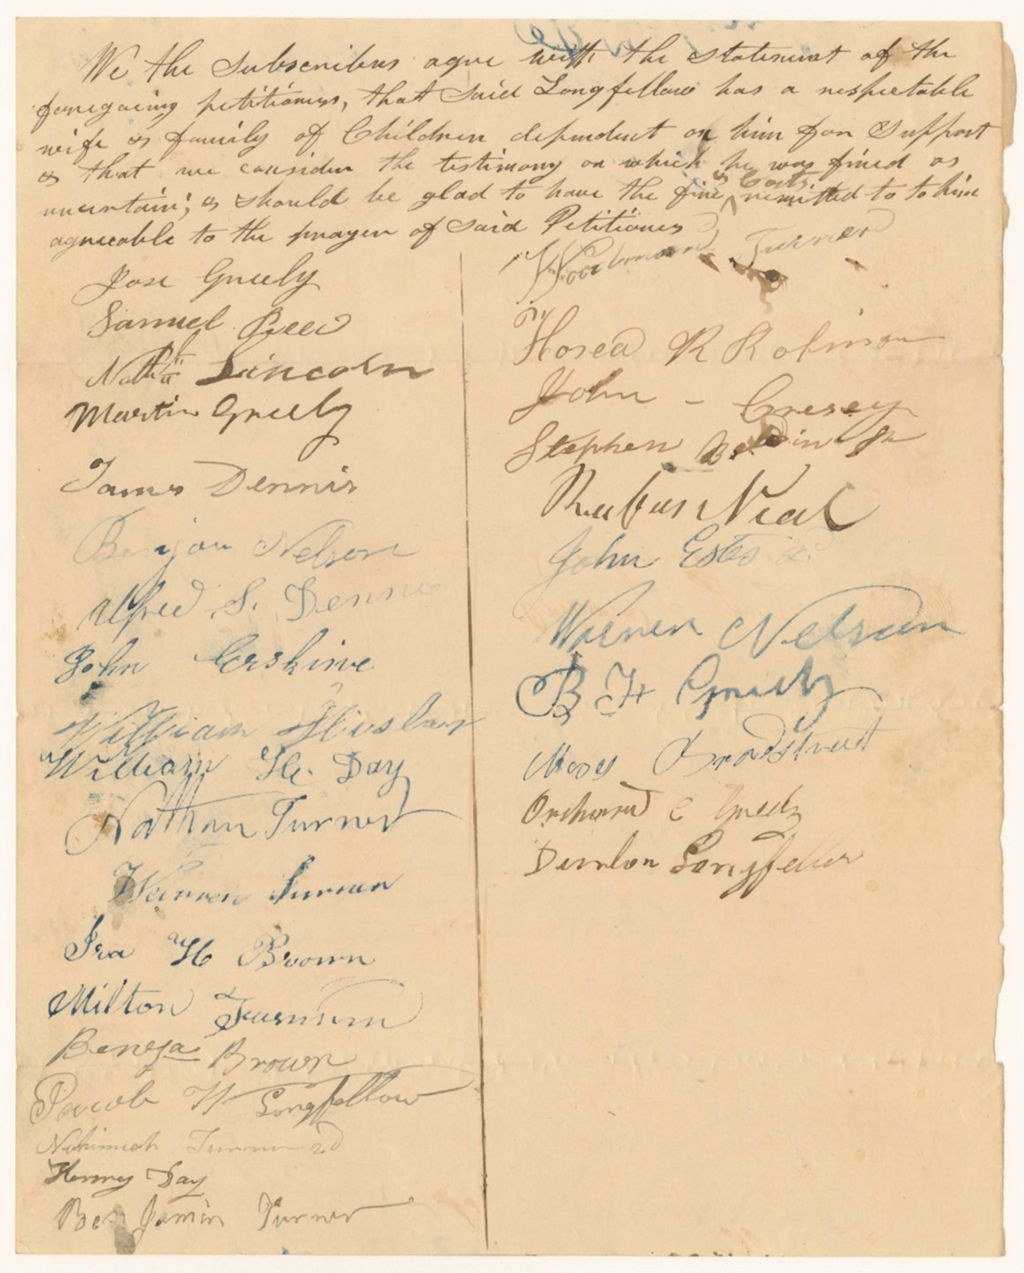 We the Subscribers agree with the statement of the
foregoing petitioners, that said Longfellow has a respectable
wife & family of Children dependent on him for Support
& that we consider the testimony on which he was fined as
uncertain; & should be glad to have the fine & Costs remitted to to him
agreeable to the prayer of said Petitioners
Jose Greely
Samuel
Lincoln
Martin Greely
James Dennis
Nelson
Alfred S. Dennis
John Erskine
William
William H. Day
Nathan Turner
Turner
Ira H Brown
Milton
Beneja Brown
Jacob W Longfellow
Nehimiah Turner 2d
Henry Day
Benjamin Turner
Turner
Hosea R Robinson
John - Cresey
Stephen Jr
Rufus Neal
John Estes 2d
Warren Nelson
B H Greely
Moses Bradstreet
Orchard C Greely
Longfellow